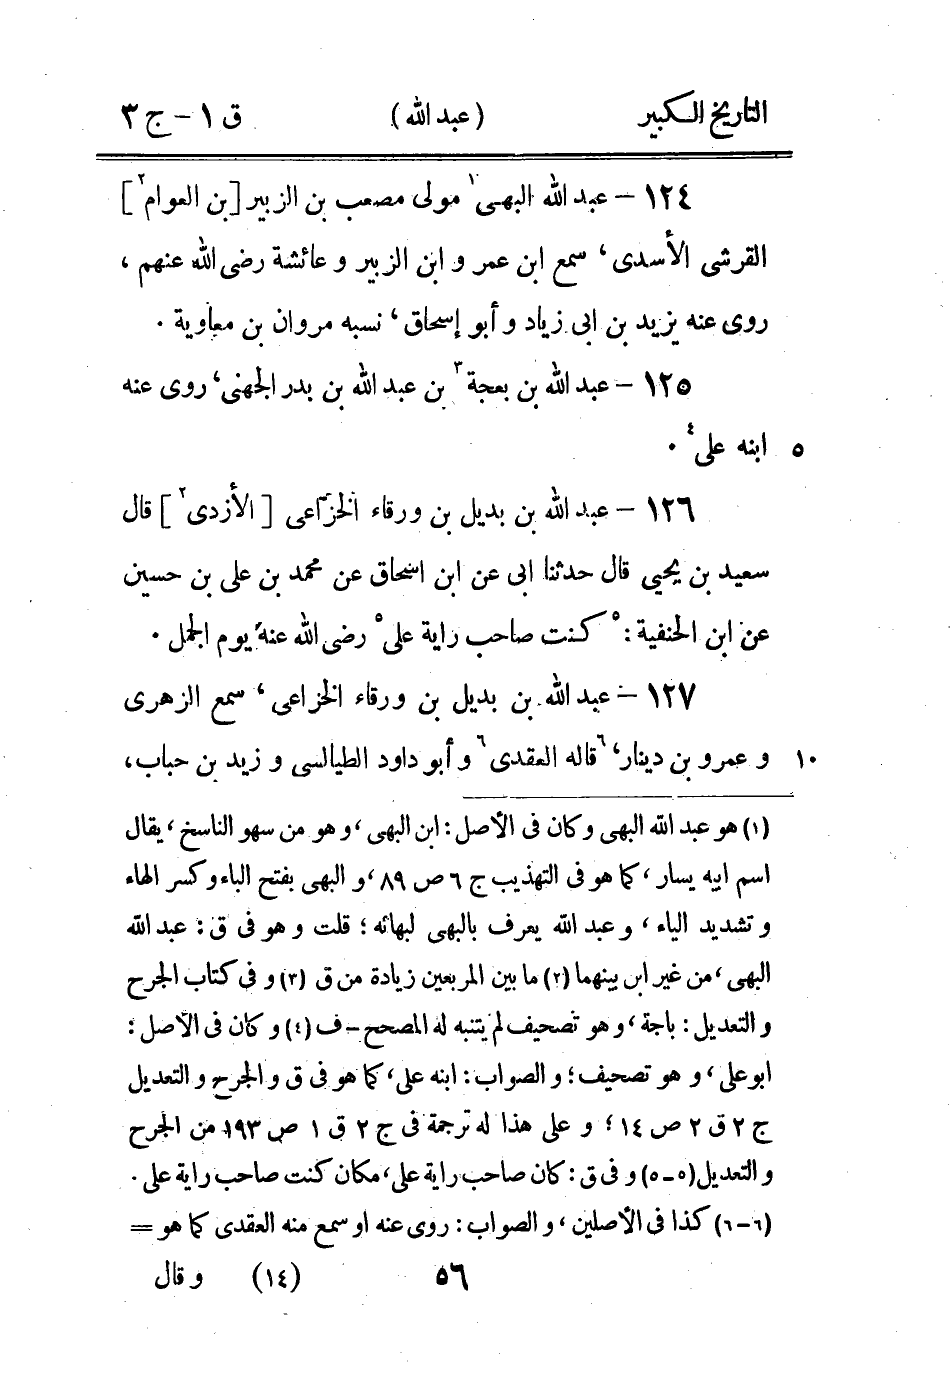 التاريخ الكبير (عبد الله) ق ١ - ج ٣
١٢٤ - عبد الله البهى ١ مولى مصعب بن الزبير [بن العوام ٢]
القرشى الأسدى، سمع ابن عمر و ابن الزبير و عائشة رضى الله عنهم،
روى عنه يزيد بن ابى زياد و أبو إسحاق، نسبه مروان بن معاوية .
١٢٥ - عبد الله بن بعجة ٣ بن عبد الله بن بدر الجهنى، روى عنه
٥ ابنه على ٤ .
١٢٦ - عبد الله بن بديل بن ورقاء الخزاعى [ الأزدى ٢ ] قال
سعيد بن يحيى قال حدثنا ابى عن ابن اسحاق عن محمد بن على بن حسين
عن ابن الحنفية : ٥ كنت صاحب راية على ٥ رضى الله عنه يوم الجمل .
١٢٧ - عبد الله بن بديل بن ورقاء الخزاعى، سمع الزهرى
١٠ و عمرو بن دينار، ٦ قاله العقدى ٦ و أبو داود الطيالسى و زيد بن حباب،
(١) هو عبد الله البهى وكان فى الأصل : ابن البهى، و هو من سهو الناسخ، يقال
اسم ابيه يسار، كما هو فى التهذيب ج ٦ ص ٨٩، و البهى بفتح الباء و كسر الهاء
و تشديد الياء، و عبد الله يعرف بالبهى لبهائه ؛ قلت و هو فى ق : عبد الله
البهى، من غير ابن بينهما (٢) ما بين المربعين زيادة من ق (٣) و فى كتاب الجرح
و التعديل : باجة، و هو تصحيف لم يتنبه له المصحح - ف (٤) و كان فى الأصل :
ابو على، و هو تصحيف ؛ و الصواب : ابنه على، كما هو فى ق و الجرح و التعديل
ج ٢ ق ٢ ص ١٤ ؛ و على هذا له ترجمة فى ج ٢ ق ١ ص ١٩٣ من الجرح
و التعديل (٥-٥) و فى ق : كان صاحب راية على، مكان كنت صاحب راية على .
(٦-٦) كذا فى الأصلين، و الصواب : روى عنه او سمع منه العقدى كما هو =
٥٦ (١٤) و قال